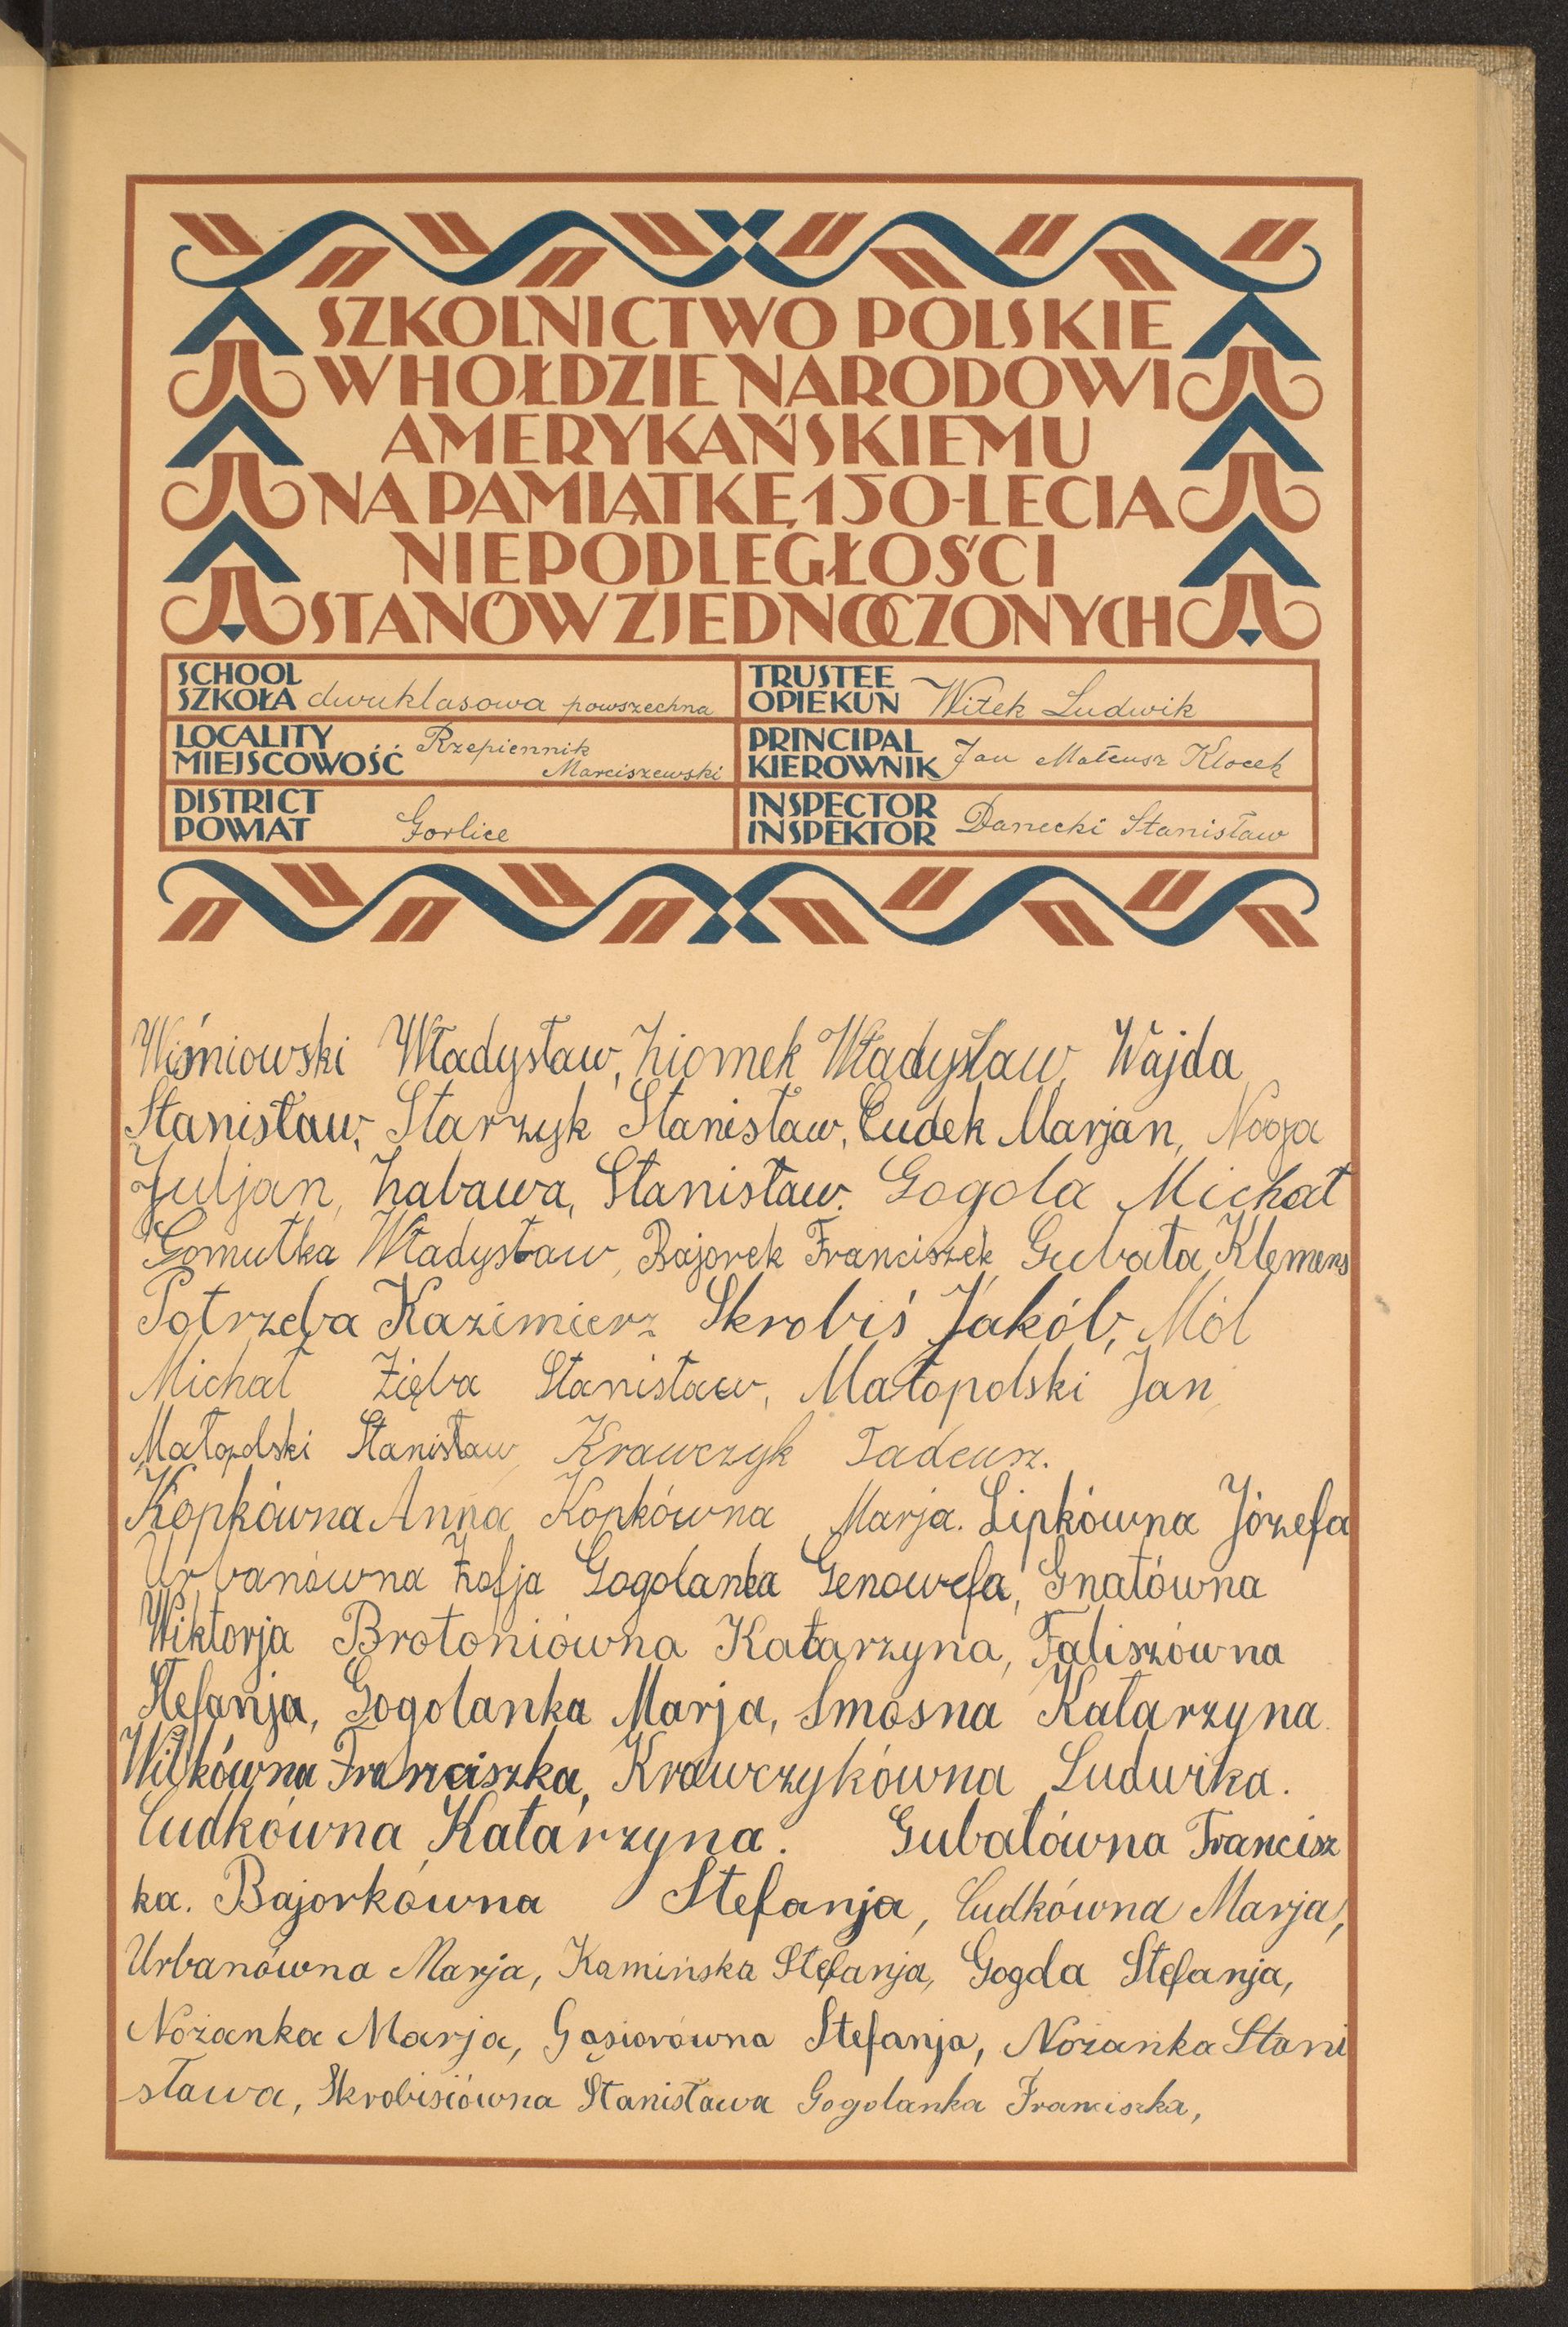 SZKOLNICTWO POLSKIE
W HOŁDZIE NARODOWI
AMERYKAŃSKIEMU
NA PAMIĄTKĘ 150-LECIA
NIEPODLEGŁOŚCI
STANÓW ZJEDNOCZONYCH
SCHOOL
SZKOŁA dwuklasowa powszechna
LOCALITY
MIEJSCOWOŚĆ Rzepiennik
Marciszewski
DISTRICT
POWIAT Gorlice
TRUSTEE
OPIEKUN Witek Ludwik
PRINCIPAL
KIEROWNIK Jan Mateusz Klocek
INSPECTOR
INSPEKTOR Danecki Stanisław
Wiśniowski Władysław, Ziomek Władysław, Wajda
Stanisław, Starzyk Stanisław, Ludek Marjan,
Juljan, Zabawa, Stanisław. Gogola Michał
Gomułka Władysław, Bajorek Franciszek Gubała Klemens
Potrzeba Kazimierz Skrobiś Jakób, Mól
Michał Zięba Stanisław, Małopolski Jan,
Małopolski Stanisław, Krawczyk Tadeusz.
Kopkówna Anna, Kopkówna Marja. Lipkówna Józefa
Urbanówna Zofja Gogolanka Genowefa, Gnatówna
Wiktorja Brotoniówna Katarzyna, Faliszówna
Stefanja, Gogolanka Marja, Smosna Katarzyna.
Witkówna Franciszka, Krawczykówna Ludwika.
Ludkówna Katarzyna. Gubałówna Francisz
ka. Bajorkówna Stefanja, Ludkówna Marja,
Urbanówna Marja, Kamińska Stefanja, Gogola Stefanja,
Nożanka Marja, Gąsiorówna Stefanja, Nożanka Stani
sława, Skrobisiówna Stanisława Gogolanka Franciszka,